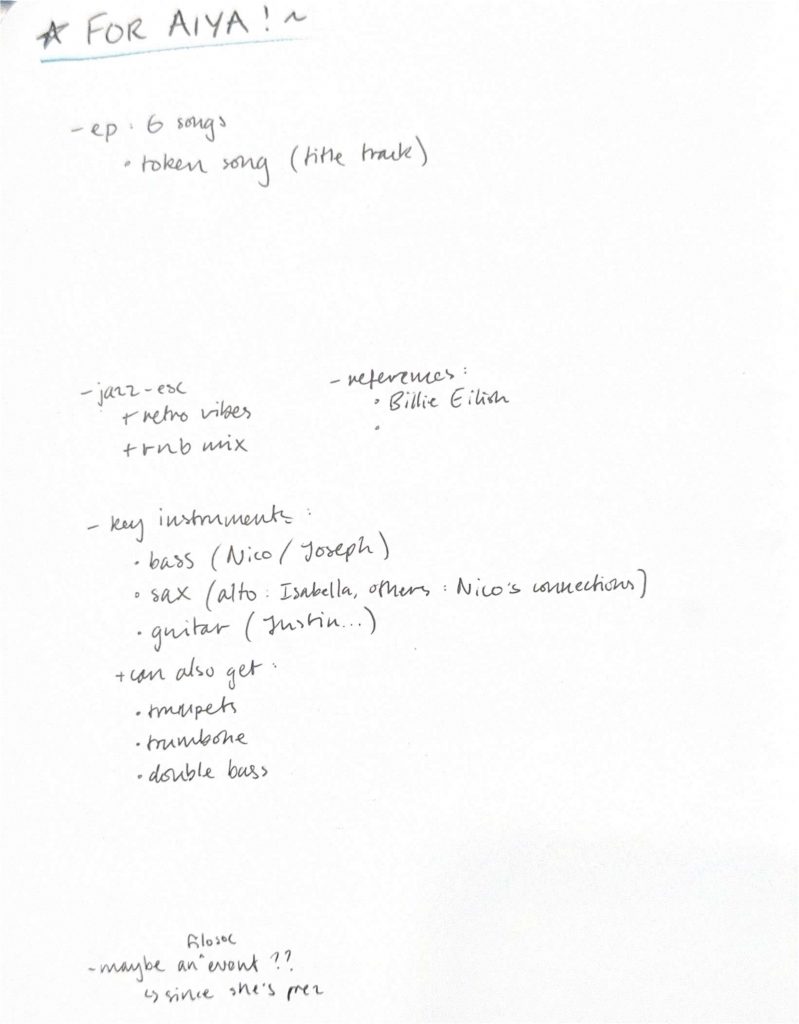 ☆ FOR AIYA! ~
- ep : 6 songs
• token song (title track)
- jazz-esc
+ retro vibes
+ rnb mix
- references :
• Billie Eilish
•
- key instruments :
• bass (Nico / Joseph)
• sax (alto : Isabella, others : Nico's connections)
• guitar (Justin...)
+ can also get :
• trumpets
• trumbone
• double bass
filosoc
- maybe an ^ event ??
↳ since she's prez